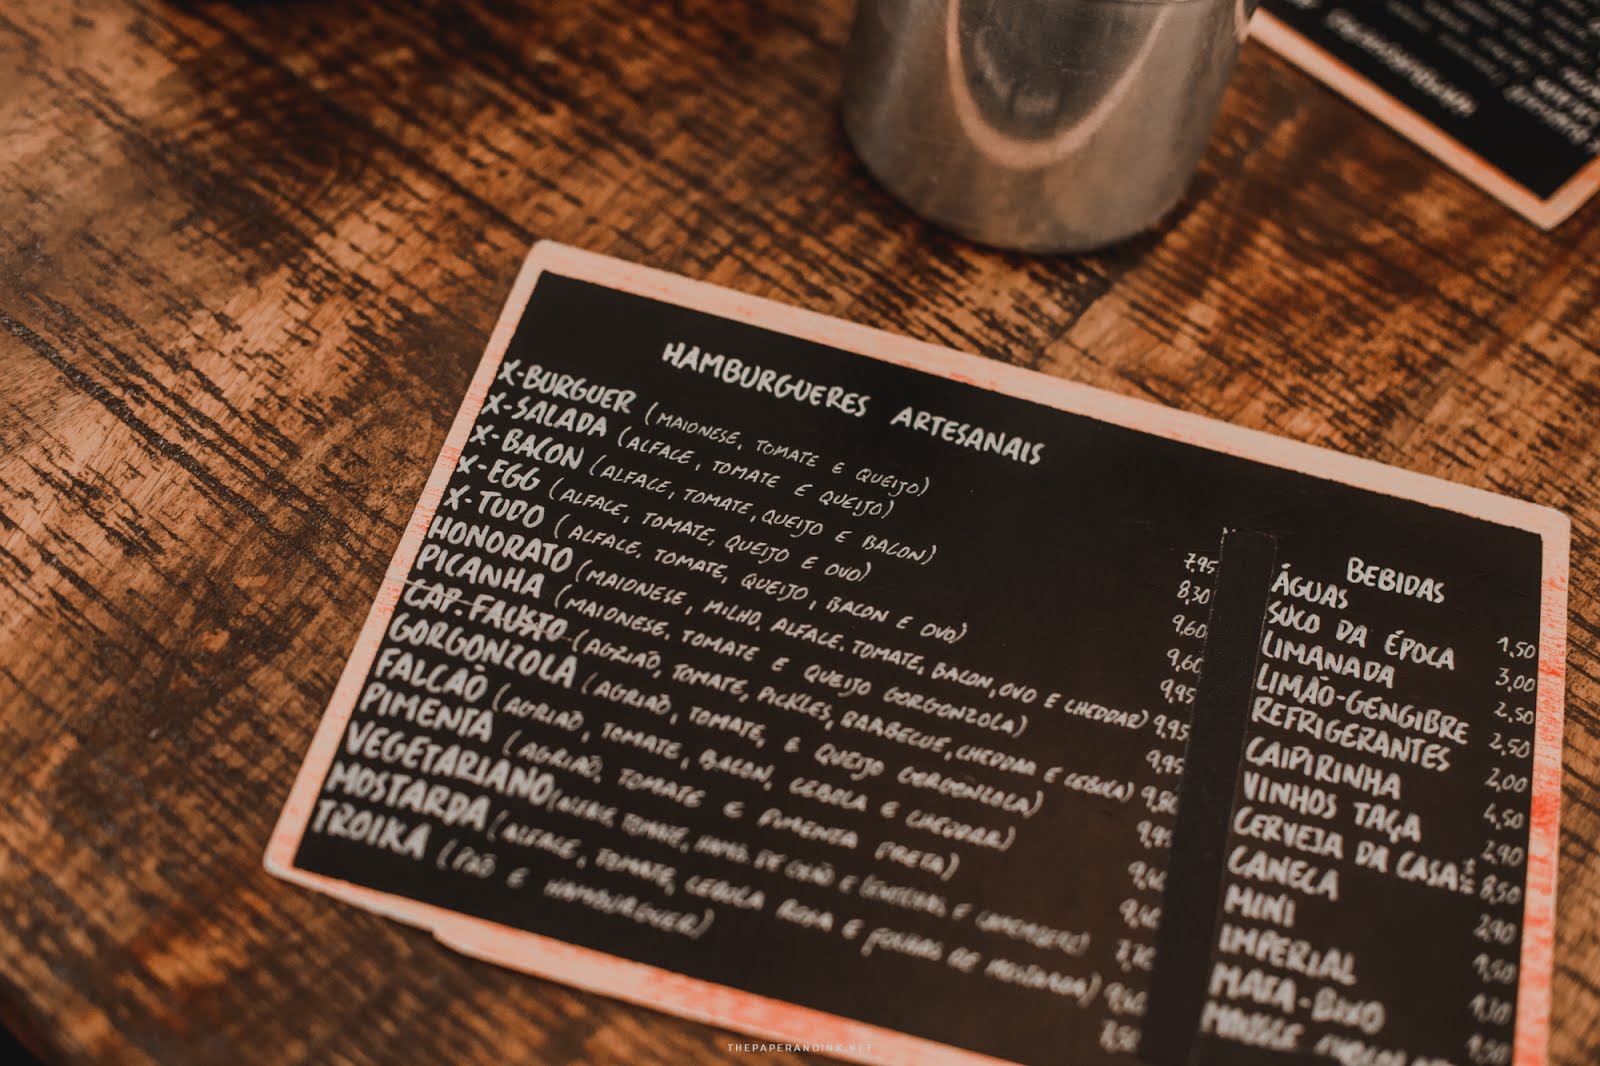 HAMBURGUERES ARTESANAIS
X-BURGUER (MAIONESE, TOMATE E QUEIJO) 7,95
X-SALADA (ALFACE, TOMATE E QUEIJO) 8,30
X-BACON (ALFACE, TOMATE, QUEIJO E BACON) 9,60
X-EGG (ALFACE, TOMATE, QUEIJO E OVO) 9,60
X-TUDO (ALFACE, TOMATE, QUEIJO, BACON E OVO) 9,95
HONORATO (MAIONESE, MILHO, ALFACE, TOMATE, BACON, OVO E CHEDDAR) 9,95
PICANHA (MAIONESE, TOMATE E QUEIJO GORGONZOLA) 9,95
CAP. FAUSTO (AGRIÃO, TOMATE, PICKLES, BARBECUE, CHEDDAR E CEBOLA)
GORGONZOLA (AGRIÃO, TOMATE, E QUEIJO GORGONZOLA) 9,95
FALCÃO (AGRIÃO, TOMATE, BACON, CEBOLA E CHEDDAR)
PIMENTA (AGRIÃO, TOMATE E PIMENTA PRETA)
VEGETARIANO
MOSTARDA (ALFACE, TOMATE, CEBOLA ROXA E FOLHAS DE MOSTARDA)
TROIKA (PÃO E HAMBURGUER) 7,50
BEBIDAS
ÁGUAS 1,50
SUCO DA ÉPOCA 3,00
LIMANADA 2,50
LIMÃO-GENGIBRE 2,50
REFRIGERANTES 2,00
CAIPIRINHA 4,50
VINHOS TAÇA 2,90
CERVEJA DA CASA 8,50
CANECA 2,90
MINI 1,50
IMPERIAL
MATA-BIXO 1,50
THEPAPERANDINK.NET